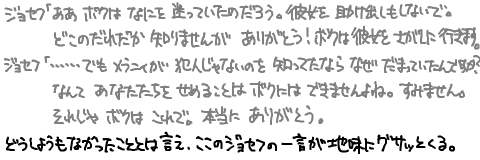 ジョセフ「ああ ボクは なにを 迷っていたのだろう。彼女を 助け出しもしないで。
どこのだれだか 知りませんが ありがとう！ボクは彼女を さがしに 行きます。
ジョセフ「……でも メラニィが 犯人じゃないのを 知ってたなら なぜ だまっていたんですか？
なんて あなたたちを せめることは ボクには できませんよね。すみません。
それじゃ ボクは これで。本当に ありがとう。
どうしようもなかったこととは言え、ここのジョセフの一言が地味にグサッとくる。